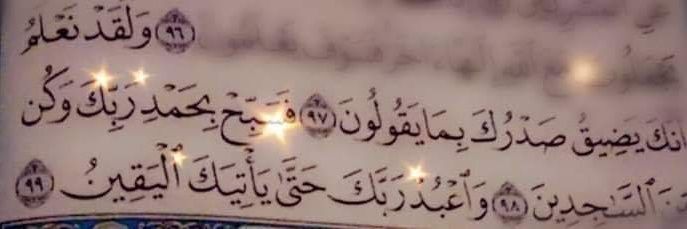 ﴿٩٦﴾ وَلَقَدْ نَعْلَمُ
أَنَّكَ يَضِيقُ صَدْرُكَ بِمَا يَقُولُونَ ﴿٩٧﴾ فَسَبِّحْ بِحَمْدِ رَبِّكَ وَكُن
مِّنَ ٱلسَّـٰجِدِينَ ﴿٩٨﴾ وَٱعْبُدْ رَبَّكَ حَتَّىٰ يَأْتِيَكَ ٱلْيَقِينُ ﴿٩٩﴾